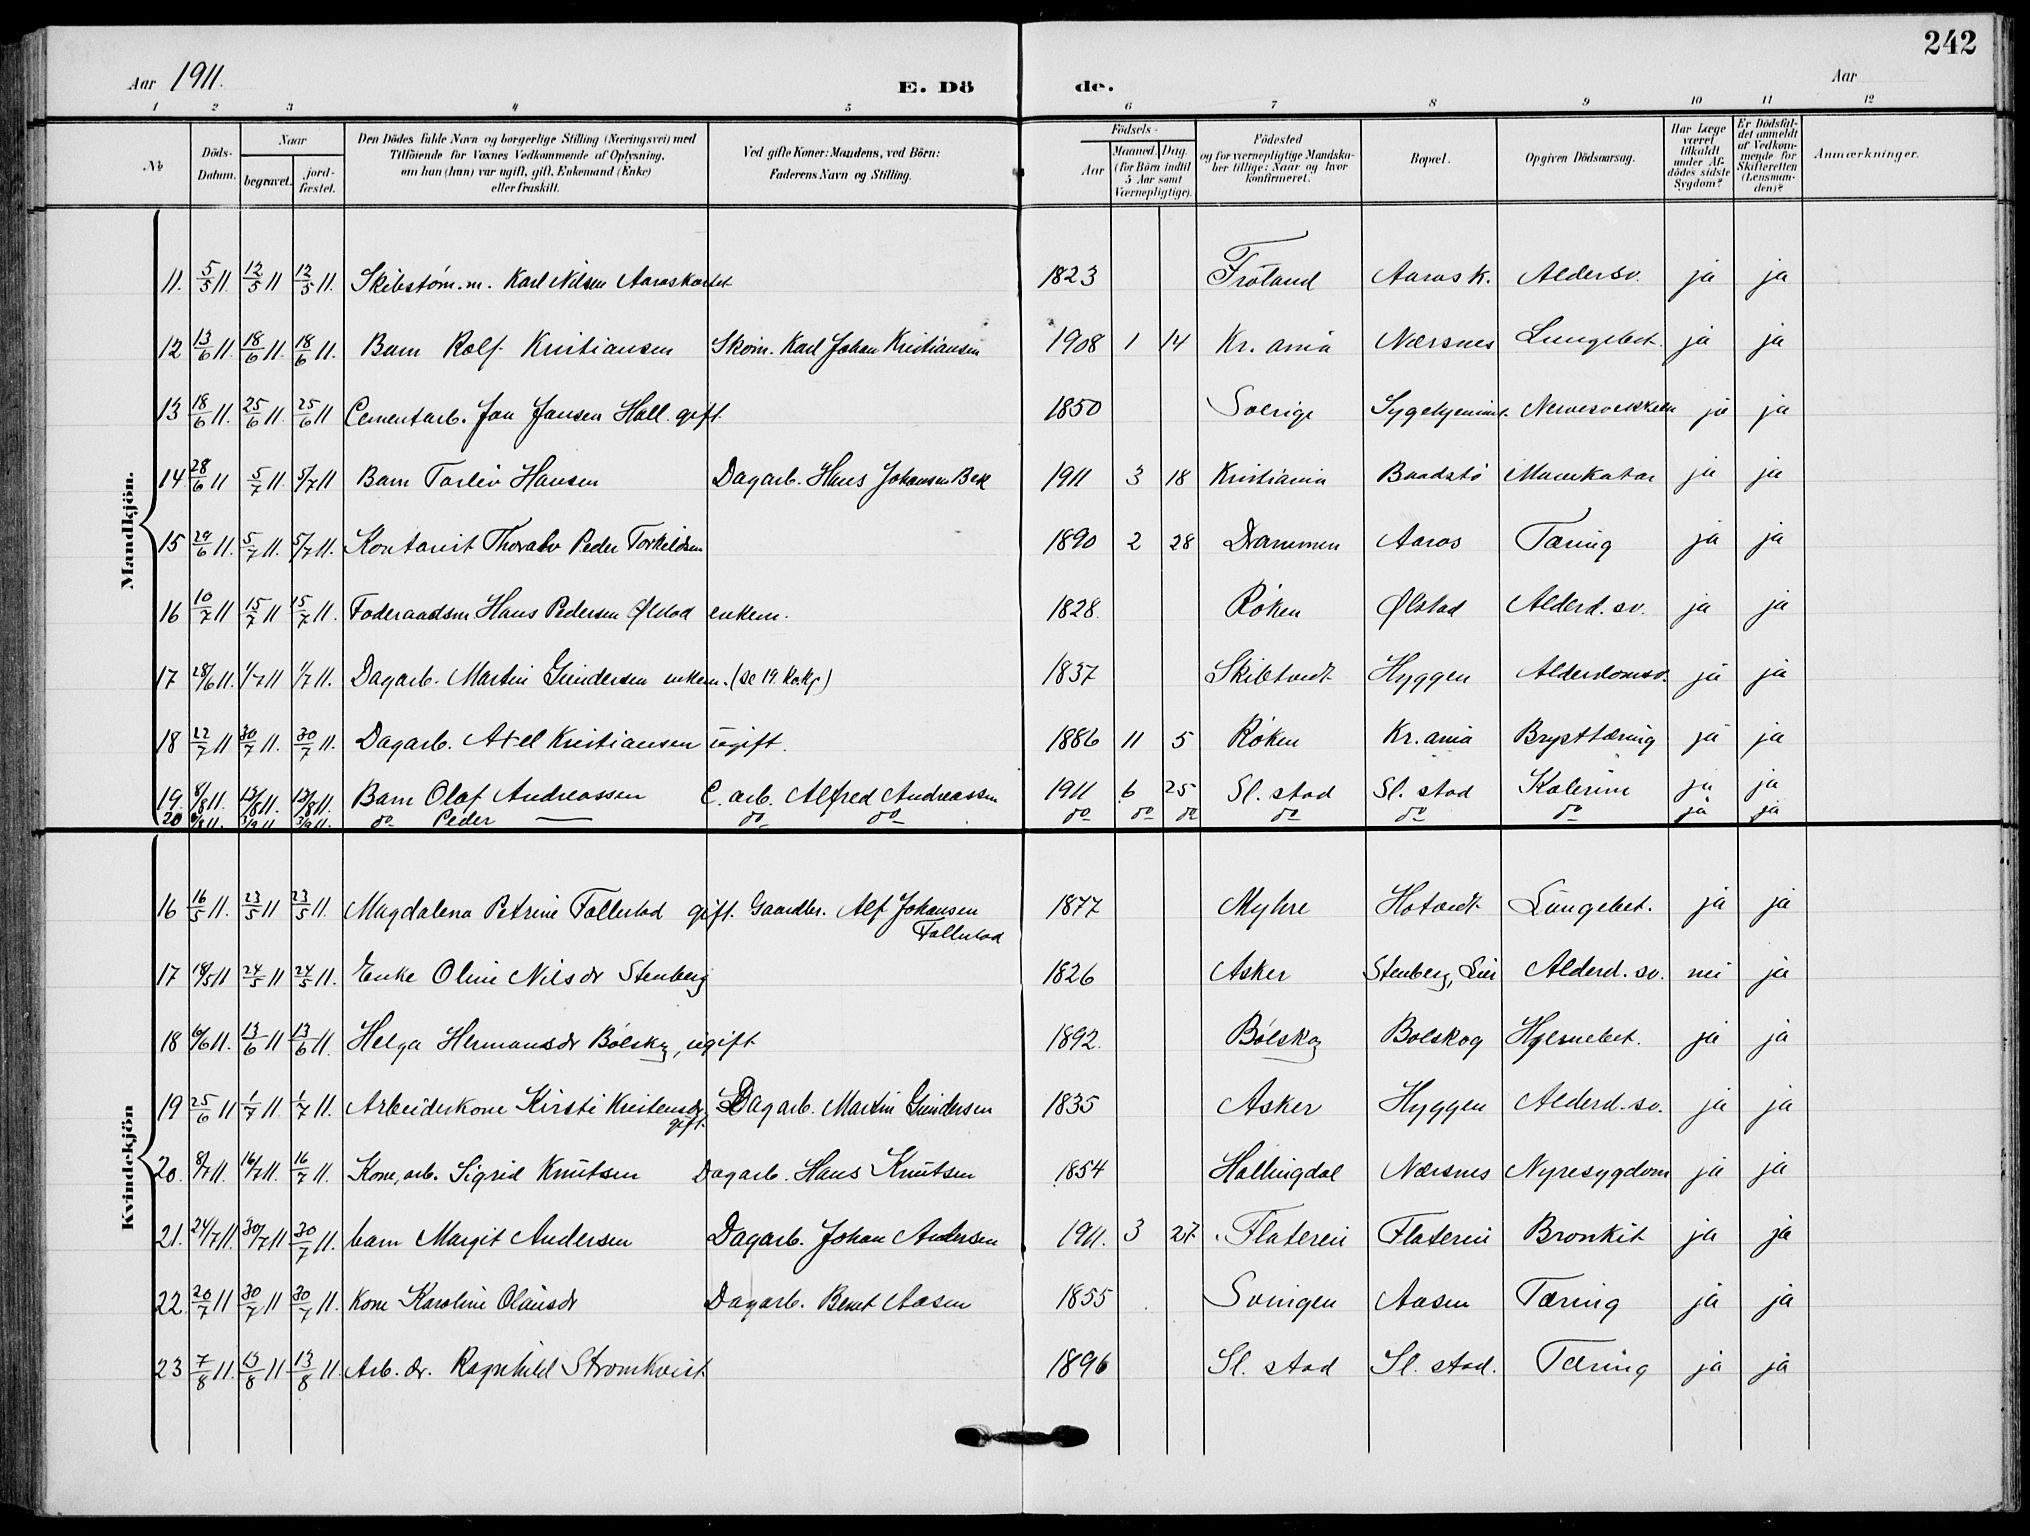 242
Aar 1911. E. Dö de. Aar
1 2 3 4 5 6 7 8 9 10 11 12
No
Döds-Datum.
Naar
begravet.
jord-festet.
Den Dödes fulde Navn og borgerlige Stilling (Næringsvei) med
Tilföiende for Voxnes Vedkommende af Oplysning,
om han (hun) var ugift, gift, Enkemand (Enke)
eller fraskilt.
Ved gifte Koner: Mandens, ved Börn:
Faderens Navn og Stilling.
Födsels-
Aar
Maaned. Dag.
(for Börn indtil
5 Aar samt
Værnepligtige).
Födested
og for værnepligtige Mandska-
ber tillige: Naar og hvor
konfirmeret.
Bopæl.
Opgiven Dödsaarsag.
Har Læge
været
tilkaldt
under Af-
dödes sidste
Sygdom?
Er Dödsfal-
det anmeldt
af Vedkom-
mende for
Skifteretten
(Lensman-
den)?
Anmærkninger.
Mandkjön.
11. 5/5 11. 12/5 11 12/5 11. Skibstøm.m. Karl Nilsen Aaroskortet 1823 Fröland Aaros k. Aldersv. ja ja
12 13/6 11. 18/6 11. 18/6 11. Barn Rolf Kristiansen Skom. Karl Johan Kristiansen 1908 1 14 Kr.ania Nærsnes Lungebet. ja ja
13 18/6 11. 25/6 11. 25/6 11 Cementarb. Jan Jansen Hall. gift. 1850 Sverige Sygehjemmet. Nervesvekkelse ja ja
14 28/6 11 5/7 11. 5/7 11 Barn Torleiv Hansen Dagarb. Hans Johansen Bek 1911 3 18 Kristiania Baadstö Mavekatar ja ja
15 29/6 11. 5/7 11. 5/7 11. Kontorist Thoralv Peder Torkildsen 1890 2 28 Drammen Aaros Tæring ja ja
16 10/7 11 15/7 11 15/7 11. Föderaadsm Hans Pedersen Ølstad enkem. 1828. Röken Ølstad Alderd.sv. ja ja
17 28/6 11. 1/7 11 1/7 11. Dagarb. Martin Gundersen enkem. (se 19. Kvkj) 1837 Skibtvedt Hyggen Alderdomsv. ja ja
18 22/7 11 30/7 11. 30/7 11. Dagarb. Axel Kristiansen ugift. 1886 11 5 Röken Kr.ania Brysttæring ja ja
19. 8/8 11. 13/8 11. 13/8 11. Barn Olaf Andreassen C. arb. Alfred Andreassen 1911 6 25 Sl. stad Sl. stad Kolerine ja ja
20 /8 11. 3/9 11 3/9 11. do Peder — do do do do do do do do ja ja
Kvindekjön
16 16/5 11. 23/5 11 23/5 11. Magdalena Petrine Follestad gift. Gaardbr. Alf Johansen 1877 Myhre Hotvedt Lungebet. ja ja
Follestad
17 18/5 11 24/5 11 24/5 11. Enke Oline Nilsdr Stenberg 1826 Asker Stenberg, Lier Alderd. sv. nei ja
18 6/6 11. 13/6 11 13/6 11. Helga Hermansdr Bölskog, ugift 1892. Bölskog Bolskog Hjernebet. ja ja
19 25/6 11 1/7 11. 1/7 11. Arbeiderkone Kirsti Kristensdr, Dagarb. Martin Gundersen 1835 Asker Hyggen Alderd. sv. ja ja
gift.
20. 8/7 11. 16/7 11. 16/7 11. Kone, arb. Sigrid Knutsen Dagarb. Hans Knutsen 1854 Hallingdal Nærsnes Nyresygdom ja ja
21. 24/7 11. 30/7 11 30/7 11. barn Margit Andersen Dagarb. Johan Andersen 1911. 3 27. Flaterei Flaterei Bronkit ja ja
22. 20/7 11 30/7 11 30/7 11. Kone Karoline Olausdr Dagarb. Bernt Aasen 1855 Svingen Aasen Tæring ja ja
23 7/8 11. 13/8 11 13/8 11. Arb. dr. Ragnhild Stromkvist 1896 Sl. stad Sl. stad. Tæring ja ja